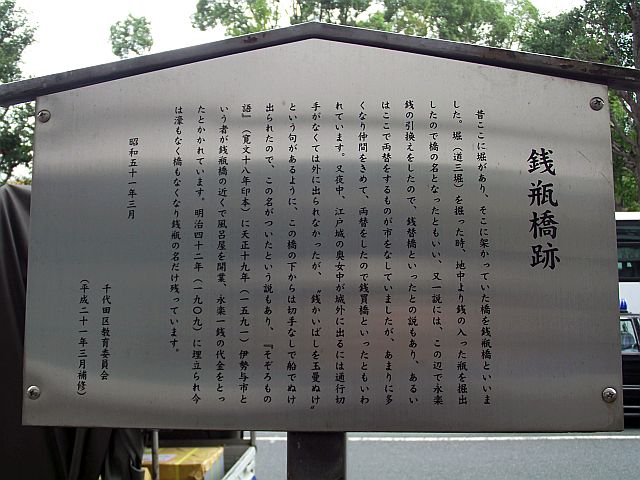 銭瓶橋跡
昔ここに堀があり、そこに架かっていた橋を銭瓶橋といいま
した。堀（道三堀）を掘った時、地中より銭の入った瓶を掘出
したので橋の名となったともいい、又一説には、この辺で永楽
銭の引換えをしたので、銭替橋といったとの説もあり、あるい
はここで両替をするものが市をなしていましたが、あまりに多
くなり仲間をきめて、両替をしたので銭買橋といったともいわ
れています。又夜中、江戸城の奥女中が城外に出るには通行切
手がなくては外に出られなかったが、〝銭かいばしを玉曼ぬけ〟
という句があるように、この橋の下からは切手なしで船でぬけ
出られたので、この名がついたという説もあり、『そぞろもの
語』（寛文十八年印本）に天正十九年（一五九一）伊勢与市と
いう者が銭瓶橋の近くで風呂屋を開業、永楽一銭の代金をとっ
たとかかれています。明治四十二年（一九〇九）に埋立られ今
は濠もなく橋もなくなり銭瓶の名だけ残っています。
昭和五十一年三月
千代田区教育委員会
（平成二十一年三月補修）